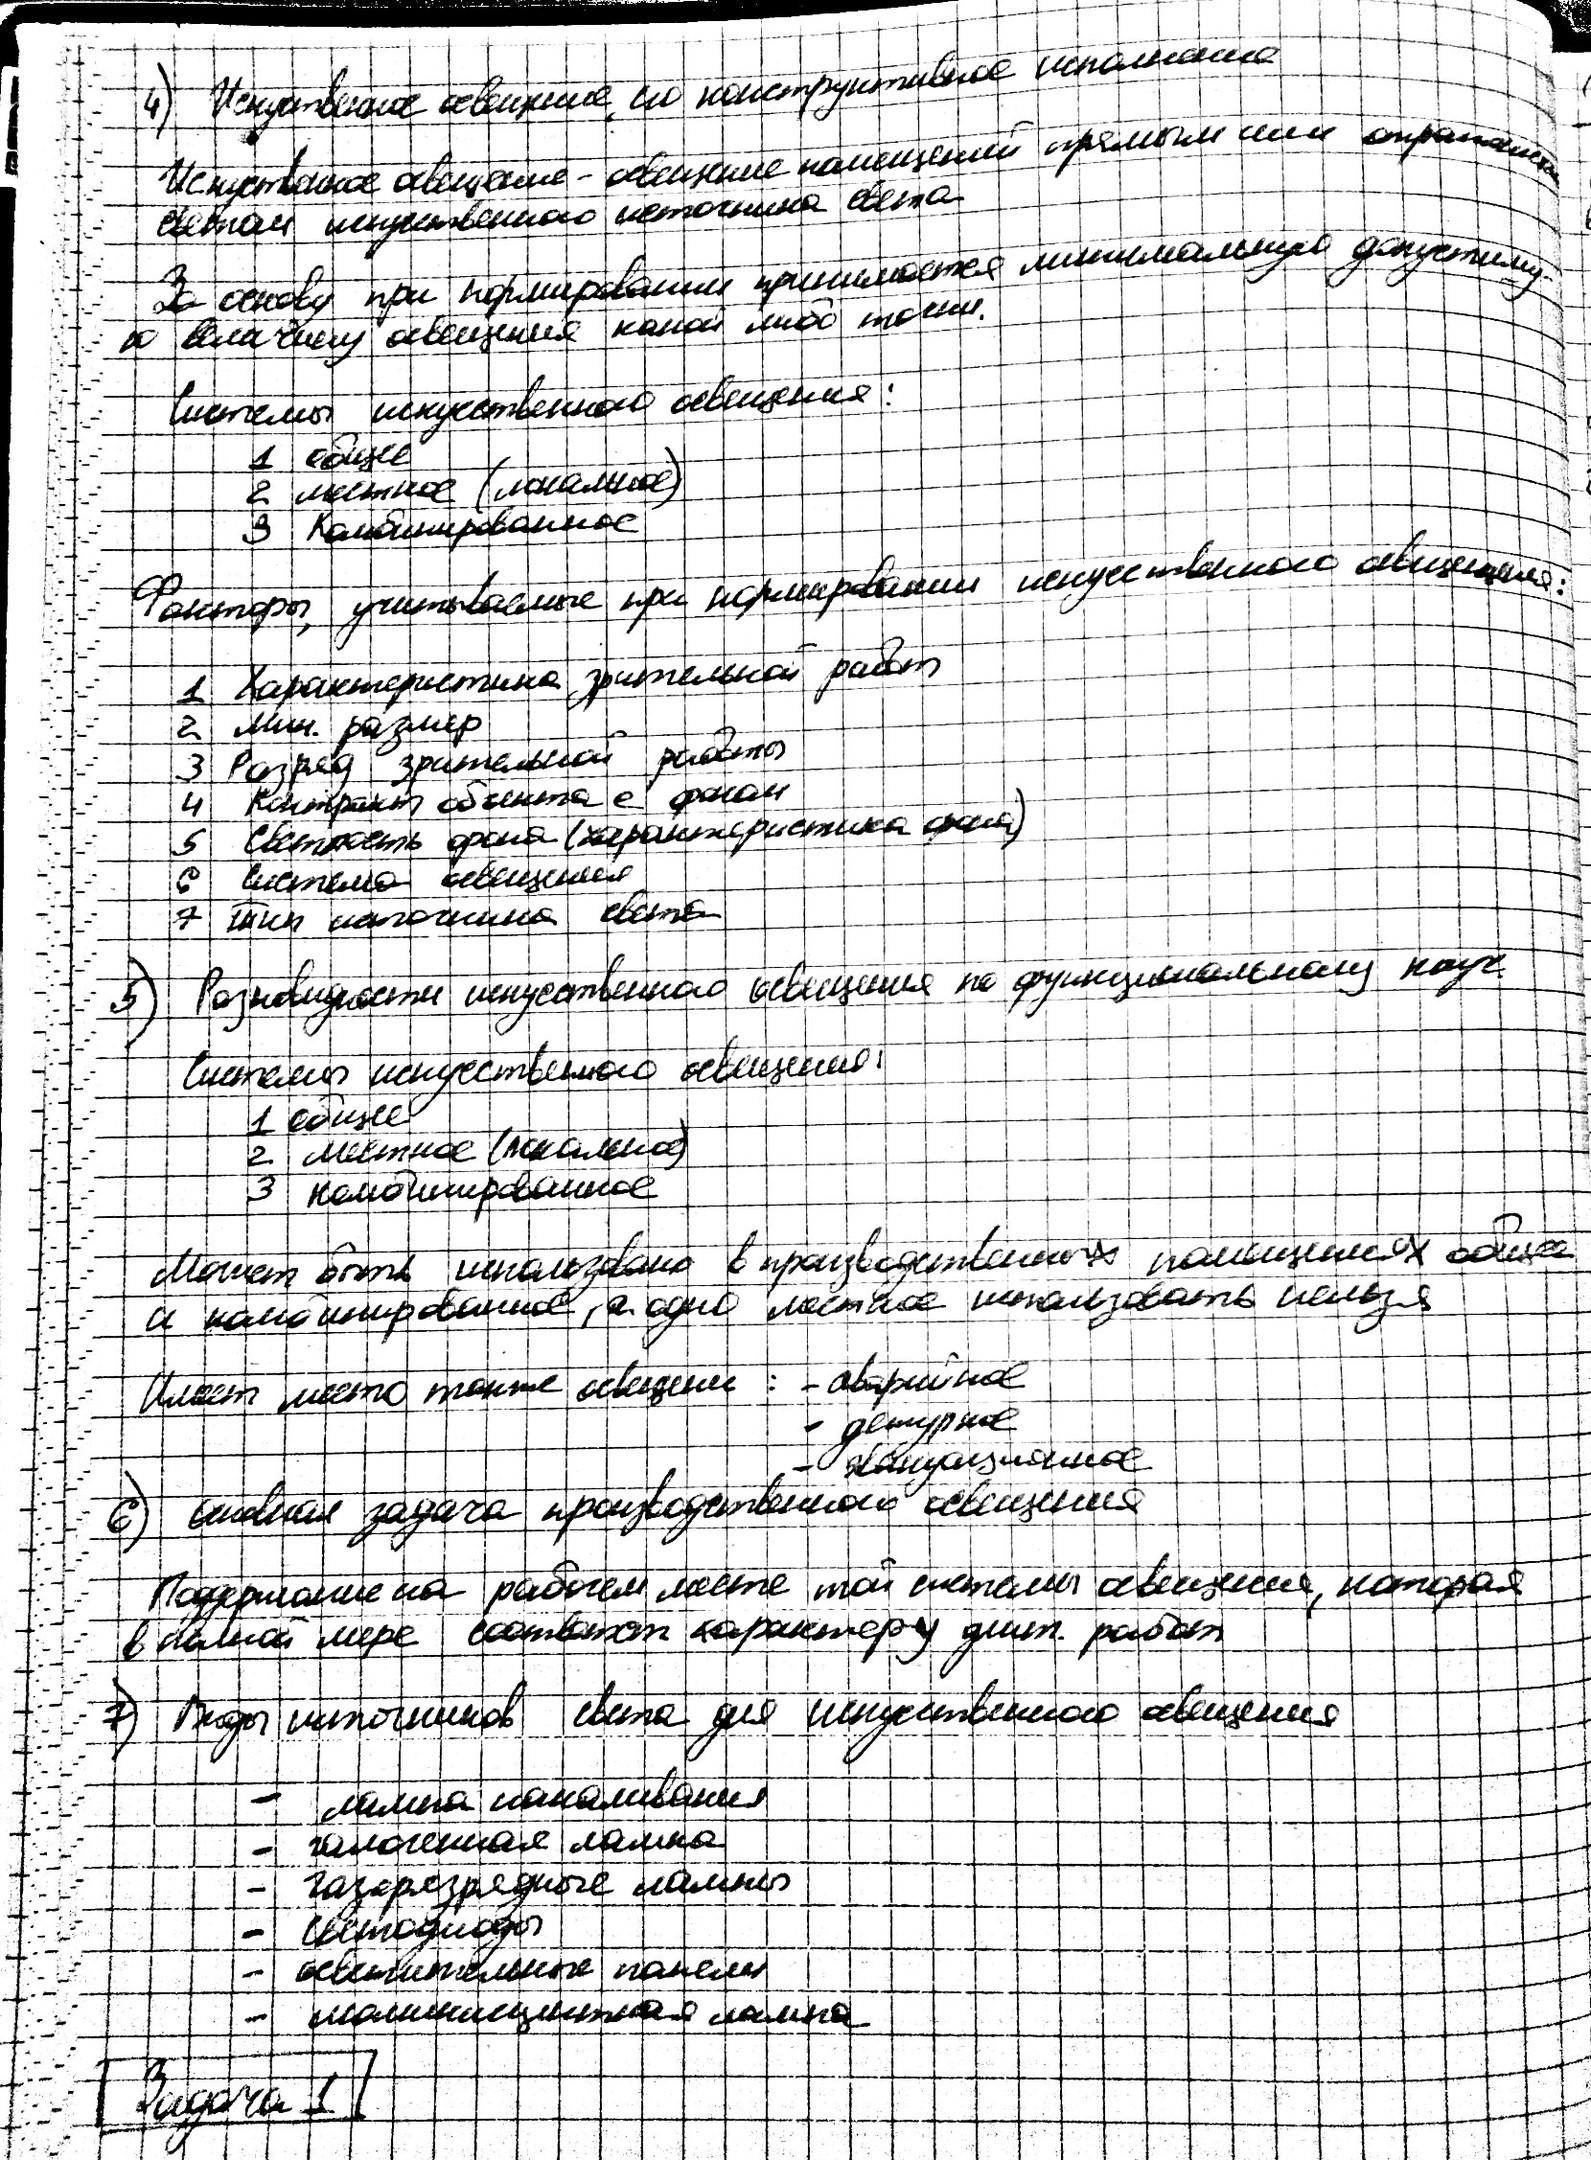 4) Искуственное освещение, его конструктивное исполнение
Искуственное освещение - освещение помещений прямым или отраженным
светом искуственного источника света
За основу при нормировании принимается минимальную допустиму-
ю величину освещения какой либо точки.
Системы искуственного освещения:
1 общее
2 местное (локальное)
3 Комбинированное
Факторы, учитываемые при нормировании искусственного освещения:
1 Характеристика зрительной работ
2 мин. размер
3 Разряд зрительной работы
4 Контраст объекта с фоном
5 Светлость фона (характеристика фона)
6 Система освещения
7 Тип источника света
5) Разновидности искусственного освещения по функциональному
Системы искусственного освещения:
1 общее
2 местное (локальное)
3 комбинированное
Может быть использовано в производственных помещениях общее
и комбинированное, а одно местное использовать нельзя
Имеет место также освещение : - аварийное
- дежурное
- эвакуационное
6) основная задача производственного освещения
Поддержание на рабочем месте той системы освещения, которая
в полной мере соответст характеру зрит. работ
7) Виды источников света для искусственного освещения
- лампа накаливания
- галогенная лампа
- газоразрядные лампы
- светодиоды
- осветительные панели
- люминисцентная лампа
Задача 1